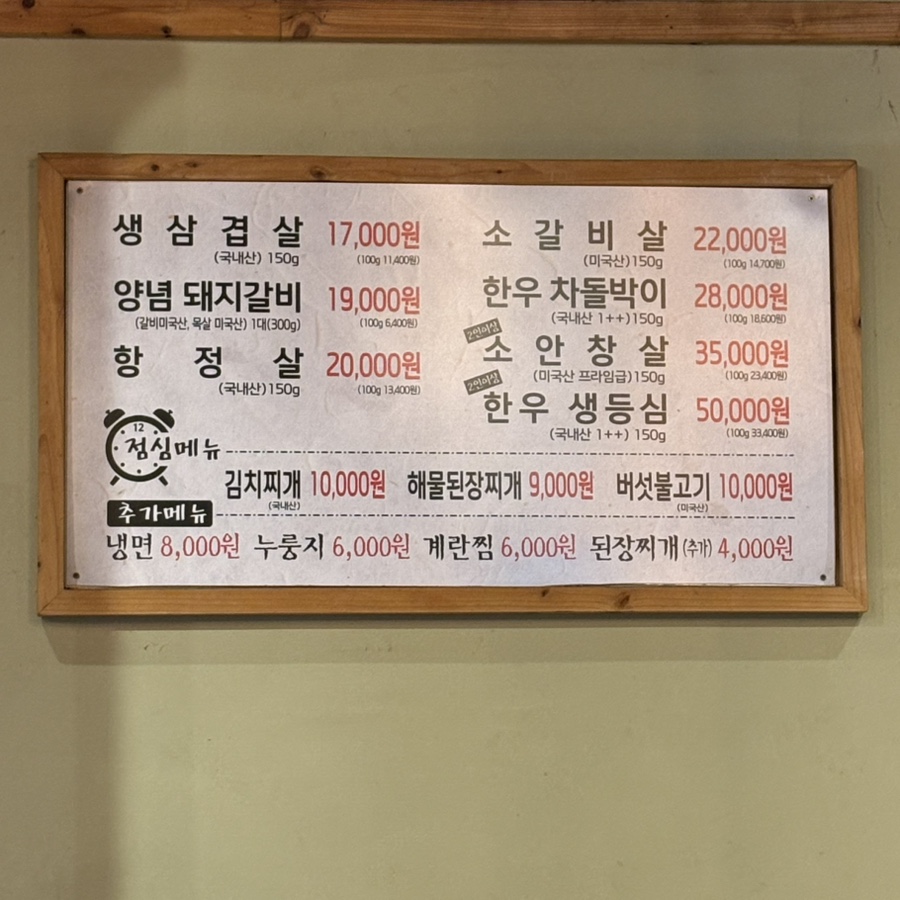 생삼겹살 17,000원
(국내산) 150g (100g 11,400원)
양념 돼지갈비 19,000원
(갈비미국산, 목살 미국산) 1대(300g) (100g 6,400원)
항정살 20,000원
(국내산) 150g (100g 13,400원)
소갈비살 22,000원
(미국산) 150g (100g 14,700원)
한우 차돌박이 28,000원
(국내산 1++) 150g (100g 18,600원)
2인이상
소안창살 35,000원
(미국산 프라임급) 150g (100g 23,400원)
2인이상
한우 생등심 50,000원
(국내산 1++) 150g (100g 33,400원)
12
점심메뉴
김치찌개 10,000원 해물된장찌개 9,000원 버섯불고기 10,000원
(국내산) (미국산)
추가메뉴
냉면 8,000원 누룽지 6,000원 계란찜 6,000원 된장찌개(추가) 4,000원